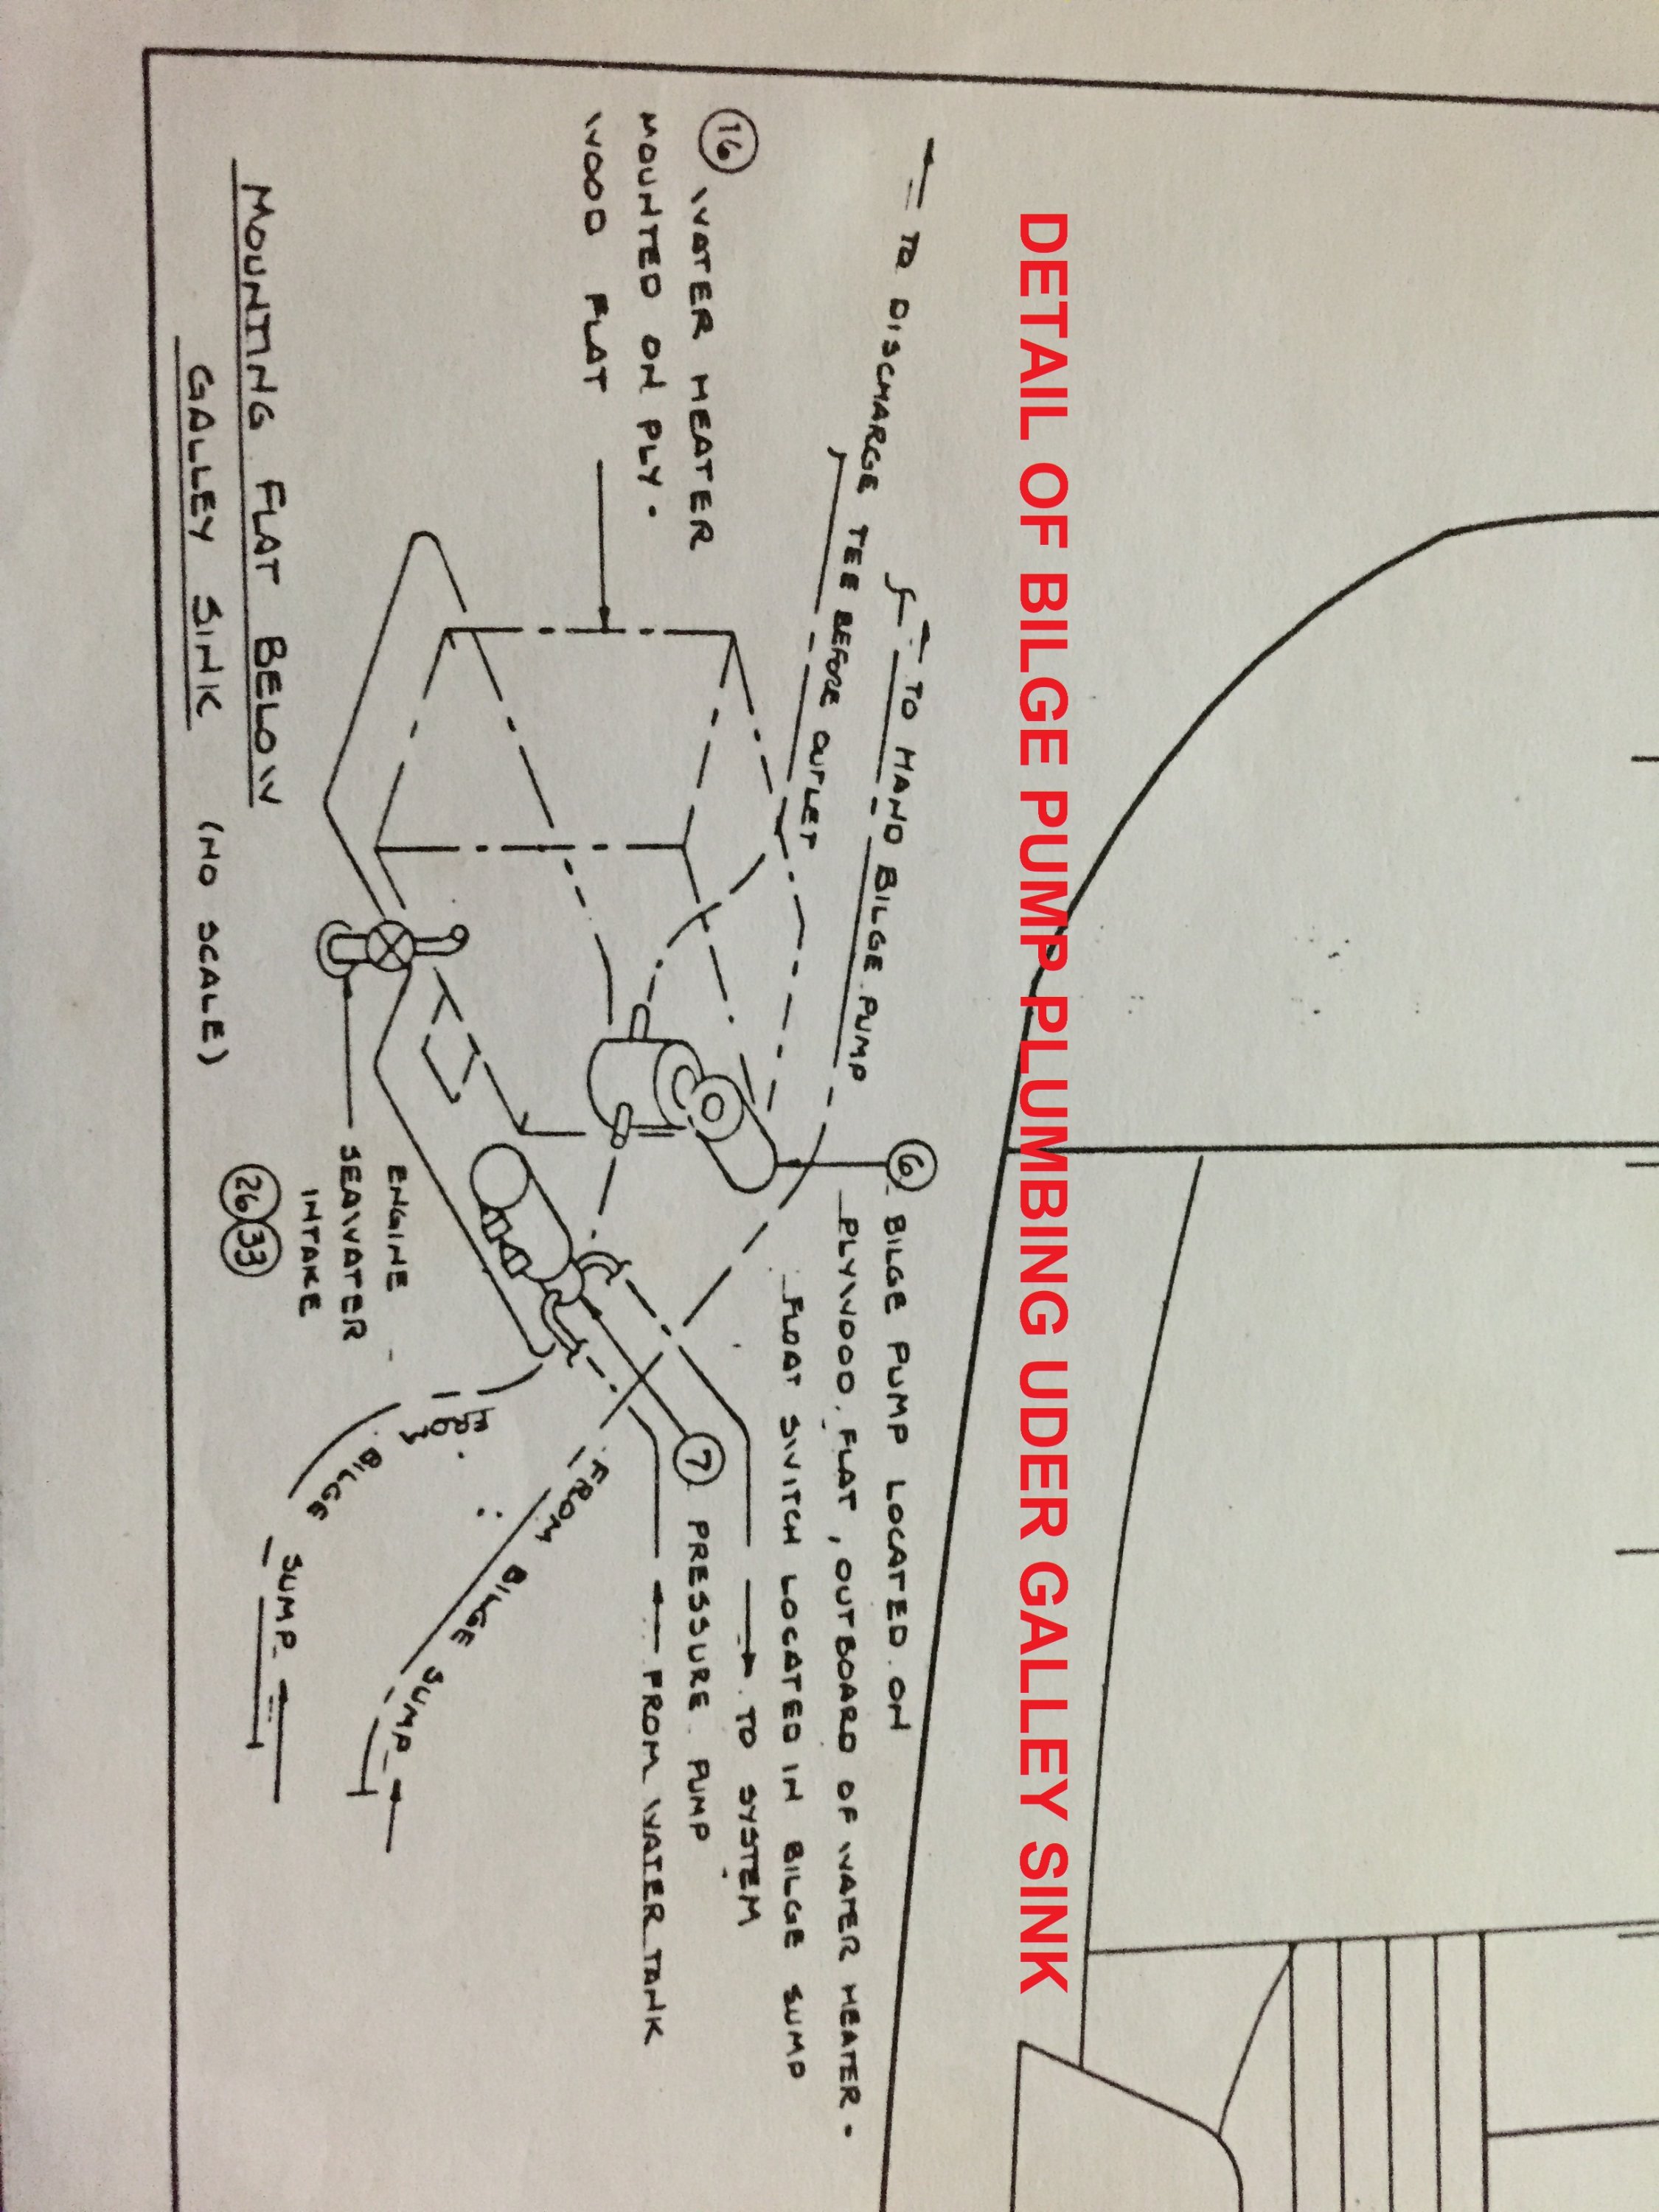 DETAIL OF BILGE PUMP PLUMBING UDER GALLEY SINK
TO DISCHARGE TEE BEFORE OUTLET
TO HAND BILGE PUMP
16 WATER HEATER
MOUNTED ON PLY-
WOOD FLAT
6 BILGE PUMP LOCATED ON
PLYWOOD FLAT, OUTBOARD OF WATER HEATER.
FLOAT SWITCH LOCATED IN BILGE SUMP
TO SYSTEM
7 PRESSURE PUMP
FROM WATER TANK
FROM BILGE SUMP
FROM BILGE SUMP
ENGINE
SEAWATER
INTAKE
26 33
MOUNTING FLAT BELOW
GALLEY SINK (NO SCALE)